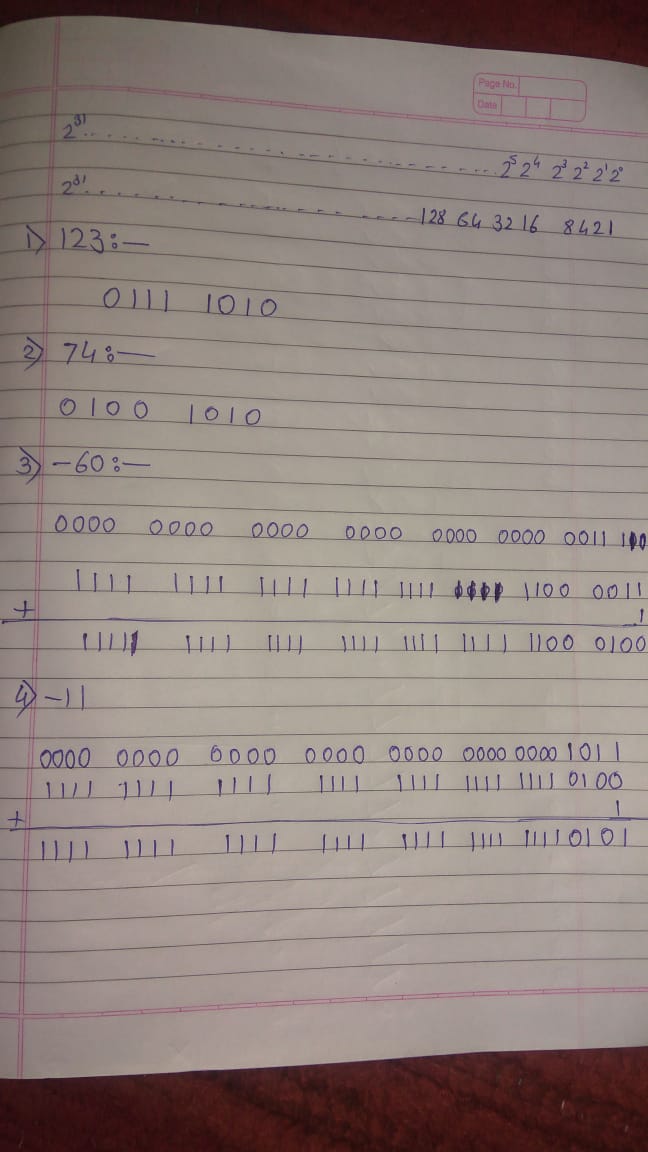 Page No.
Date
2³¹ . . . . . . . . . . . . . . . . . . 2⁵ 2⁴ 2³ 2² 2¹ 2⁰
2³¹ . . . . . . . . . . . . . . . . . . 128 64 32 16 8 4 2 1
1) 123:—
0111 1010
2) 74:—
0100 1010
3) -60:—
0000 0000 0000 0000 0000 0000 0011 1100
1111 1111 1111 1111 1111 1100 0011
+ 1
1111 1111 1111 1111 1111 1111 1100 0100
4) -11
0000 0000 0000 0000 0000 0000 0000 1011
1111 1111 1111 1111 1111 1111 1111 0100
+ 1
1111 1111 1111 1111 1111 1111 1111 0101